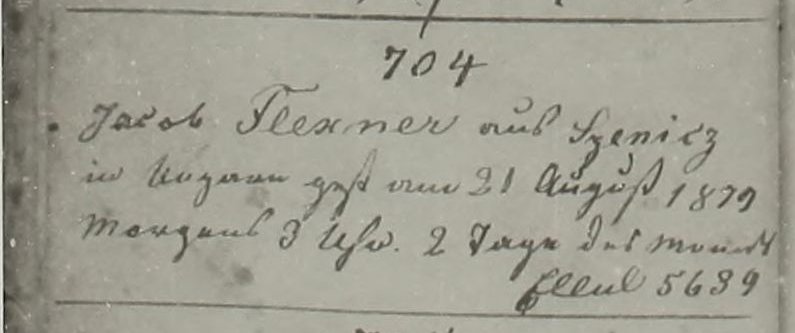 704
Jacob Flexner aus Szenicz
in Ungarn gest am 21 August 1879
Morgens 3 Uhr. 2 Tage des Monats
Ellul 5639